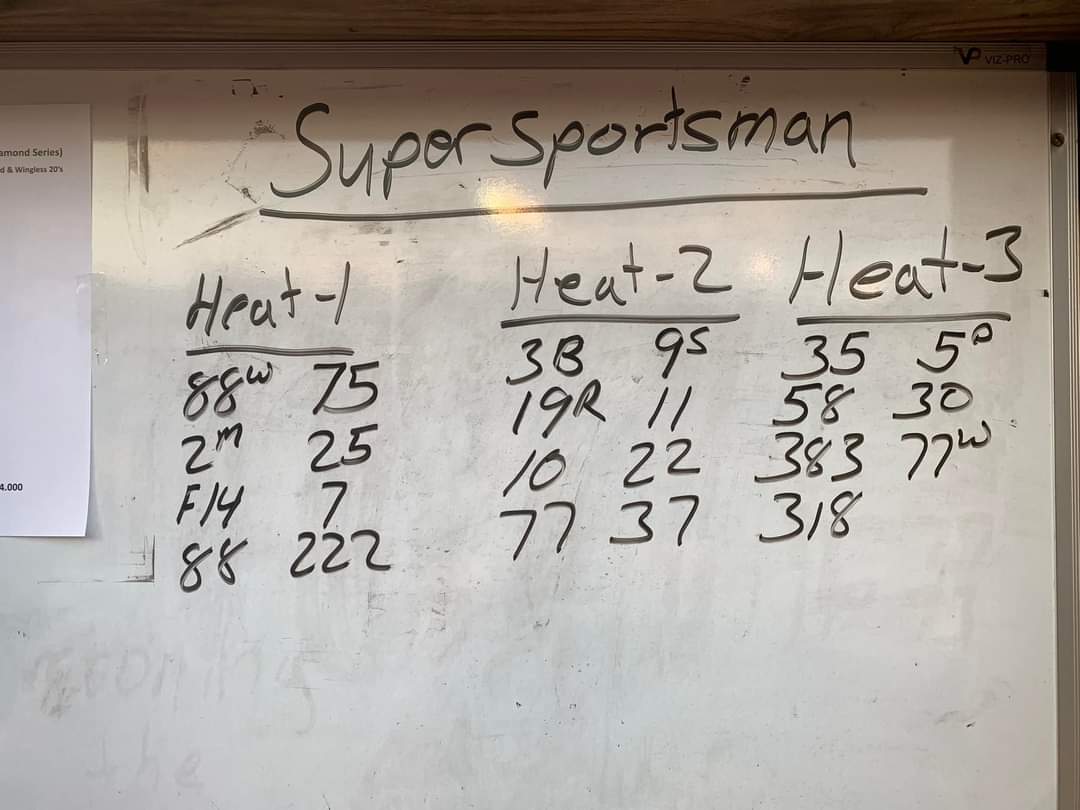 VP VIZ-PRO
amond Series)
d & Wingless 20's
4.000
Super Sportsman
Heat-1 Heat-2 Heat-3
88W 75 3B 9S 35 5D
2M 25 19R 11 58 30
F14 7 10 22 383 77W
88 222 77 37 318
the